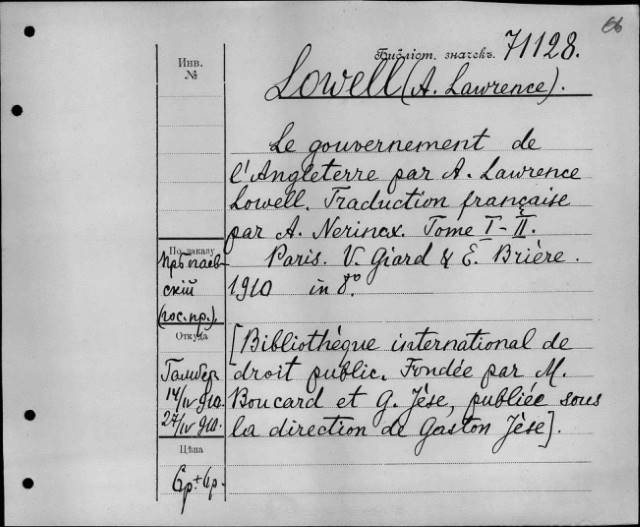 66
Библіот. значекъ. 71128.
Инв.
№
Lowell (A. Lawrence).
Le gouvernement de
l'Angleterre par A. Lawrence
Lowell. Traduction française
par A. Nerinex. Tome I-II.
По заказу
Paris. V. Giard & E. Brière.
скій
1910 in 8º.
(гос. пр.).
Откуда
[Bibliothèque international de
droit public. Fondée par M.
14/IV 910.
Boucard et G. Jèse, publiée sous
27/IV 910.
la direction de Gaston Jèse].
Цѣна
6р.+6р.